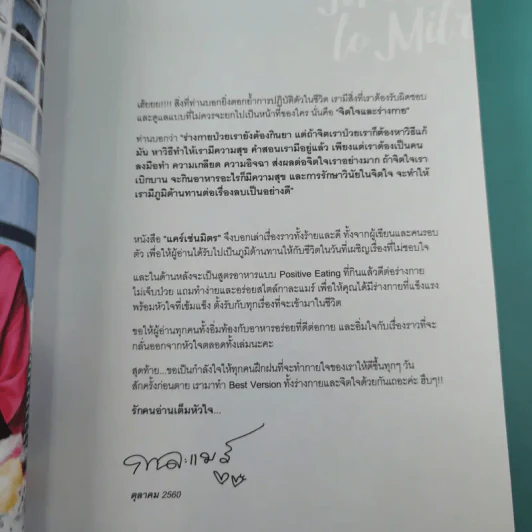 to Mit
เฮ้ยยย!!!! สิ่งที่ท่านบอกยิ่งตอกย้ำการปฏิบัติตัวในชีวิต เรามีสิ่งที่เราต้องรับผิดชอบ
และดูแลแบบที่ไม่ควรจะยกไปเป็นหน้าที่ของใคร นั่นคือ "จิตใจและร่างกาย"
ท่านบอกว่า "ร่างกายป่วยเรายังต้องกินยา แต่ถ้าจิตเราป่วยเราก็ต้องหาวิธีแก้
มัน หาวิธีทำให้เรามีความสุข คำสอนเรามีอยู่แล้ว เพียงแต่เราต้องเป็นคน
ลงมือทำ ความเกลียด ความอิจฉา ส่งผลต่อจิตใจเราอย่างมาก ถ้าจิตใจเรา
เบิกบาน จะกินอาหารอะไรก็มีความสุข และการรักษาวินัยในจิตใจ จะทำให้
เรามีภูมิต้านทานต่อเรื่องลบเป็นอย่างดี"
หนังสือ "แคร์เช่นมิตร" จึงบอกเล่าเรื่องราวทั้งร้ายและดี ทั้งจากผู้เขียนและคนรอบ
ตัว เพื่อให้ผู้อ่านได้รับไปเป็นภูมิต้านทานให้กับชีวิตในวันที่เผชิญเรื่องที่ไม่ชอบใจ
และในด้านหลังจะเป็นสูตรอาหารแบบ Positive Eating ที่กินแล้วดีต่อร่างกาย
ไม่เจ็บป่วย แถมทำง่ายและอร่อยสไตล์กาละแมร์ เพื่อให้คุณได้มีร่างกายที่แข็งแรง
พร้อมหัวใจที่เข้มแข็ง ตั้งรับกับทุกเรื่องที่จะเข้ามาในชีวิต
ขอให้ผู้อ่านทุกคนทั้งอิ่มท้องกับอาหารอร่อยที่ดีต่อกาย และอิ่มใจกับเรื่องราวที่จะ
กลั่นออกจากหัวใจตลอดทั้งเล่มนะคะ
สุดท้าย...ขอเป็นกำลังใจให้ทุกคนฝึกฝนที่จะทำกายใจของเราให้ดีขึ้นทุกๆ วัน
สักครั้งก่อนตาย เรามาทำ Best Version ทั้งร่างกายและจิตใจด้วยกันเถอะค่ะ ฮึบๆ!!
รักคนอ่านเต็มหัวใจ...
กาละแมร์
ตุลาคม 2560